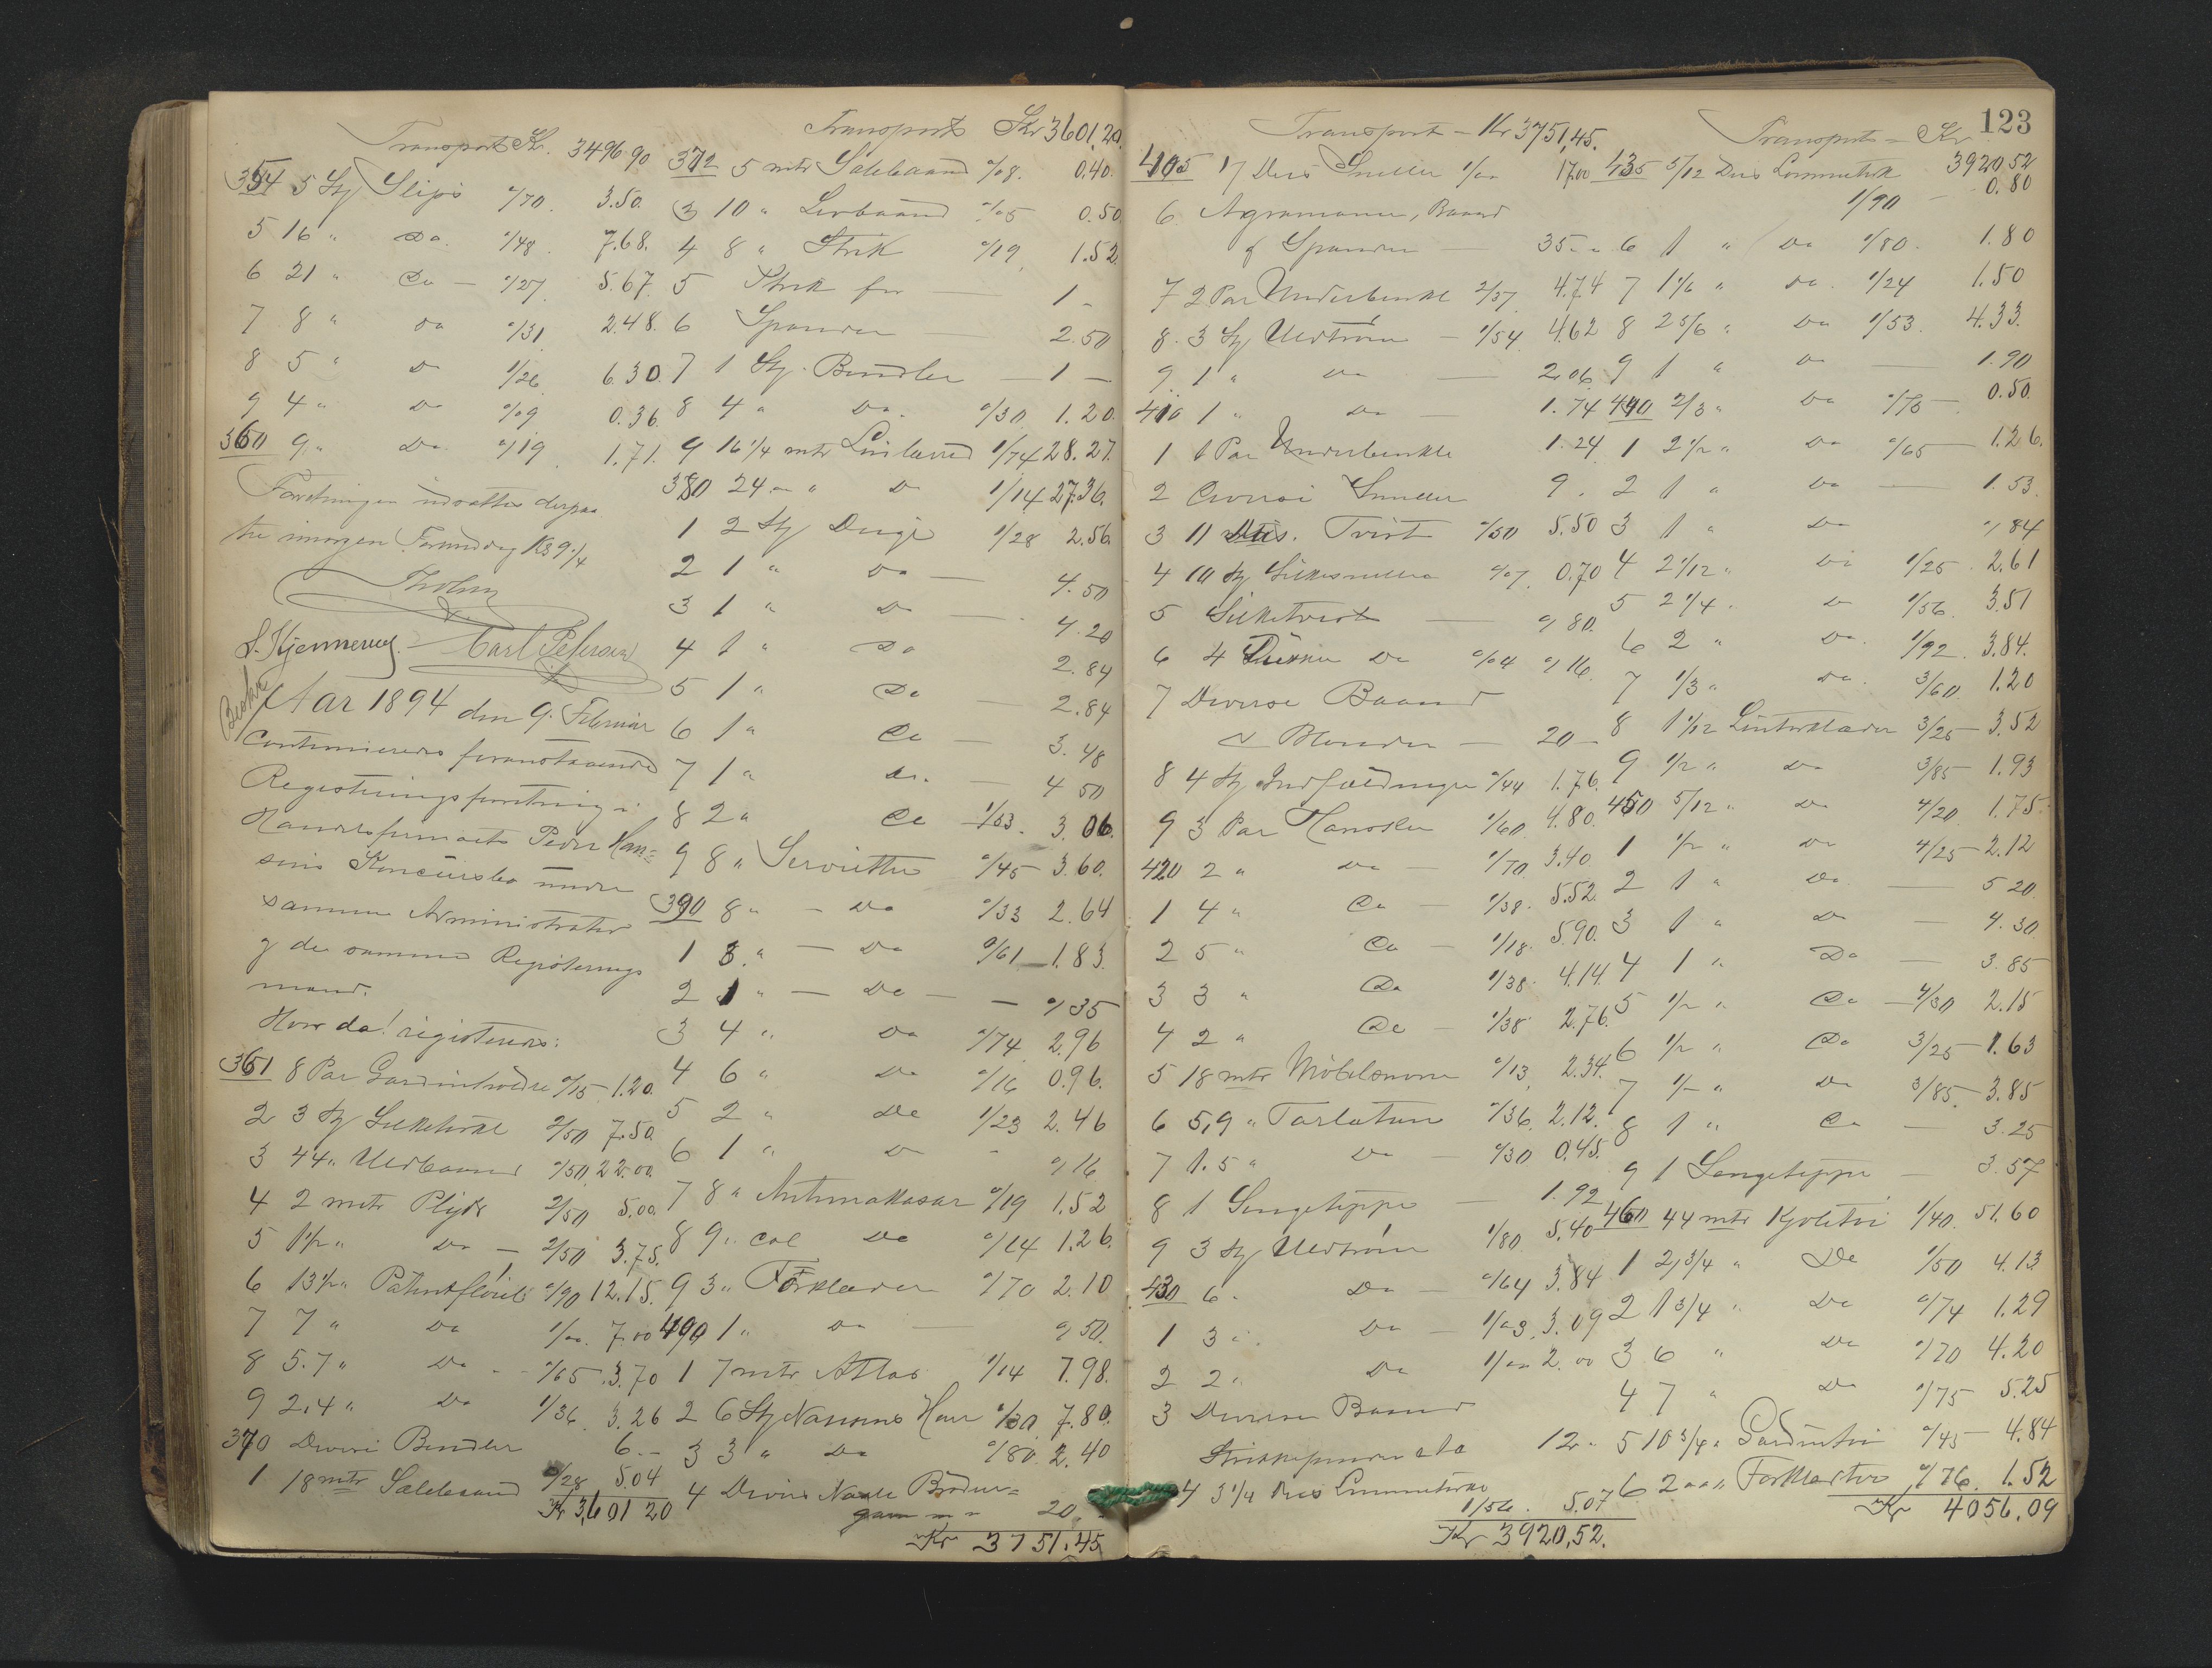 Transport Kr. 3496 90
354 5 Stj Slips %70. 3.50.
5 16 " Do. %48. 7.68.
6 21 " Do — %27. 5.67.
7 8 " Do %31. 2.48.
8 5 " Do 1/26 6.30.
9 4 " Do %09 0.36.
360 9 " Do %19. 1.71.
Forretningen udsattes derpaa
til imorgen Formiddag Kl 9 1/4
Tholm
S. Kjennerud. Carl Petersen
Beskr.
Aar 1894 den 9. Februar
continueredes foranstaaende
Registreringsforretning i
Handelsfirmaet Peder Han=
sens Konkursbo under
samme Administrator
og de samme Registrerings
mænd.
Hvor da! registreres:
361 8 Par Gardinholdre %15 1.20.
2 3 Stj Silketørkl 2/50 7.50.
3 44 " Uldbaand %50 22.00.
4 2 mtr Plyds 2/50 5.00.
5 1 1/2 " Do — 2/50 3.75.
6 13 1/2 " Patentfløiel %90 12.15.
7 7 " Do 1/00. 7.00
8 5.7 " Do - %65 3.70
9 2,4 " Do 1/36 3.26
370 Diverse Bendler 6.-
1 18 mtr Salebaand %28 5.04
Kr 3,601 20
Transport Kr 3601,20.
372 5 mtr Salebaand %08. 0.40.
3 10 " Livbaand %05 0.50
4 8 " Strik %19 1.52
5 Strik for — 1 -
6 Spænder — 2.50
7 1 Stj. Bendler — 1 —
8 4 " Do. %30 1.20.
9 16 1/4 mtr Linlærred 1/74 28.27.
380 24 - " Do 1/14 27.36.
1 2 Stj Duge 1/28 2.56.
2 1 " Do — 4.50
3 1 " Do — 4.20
4 1 " Do 2.84
5 1 " Do — 2.84
6 1 " Do — 3.48
7 1 " Do. — 4 50
8 2 " Do 1/53. 3.06.
9 8 " Servietter %45 3.60.
390 8 " — Do %33 2.64
1 3 " — Do %61 1.83.
2 1 " — Do — - %35
3 4 " Do %74 2.96
4 6 " Do %16 0.96.
5 2 " Do 1/23 2.46
6 1 " Do - %16
7 8 " Antimakasar %19 1.52
8 9 " col Do %14 1.26.
9 3 " Forklæder %70 2.10
400 1 " Do — %50.
1 7 mtr Atlas 1/14 7.98.
2 6 Stj Nansens Huer 1/30 7.80.
3 3 " Do %80. 2.40
4 Divers Brodur=
garn m m 20. -
Kr 3751.45
123
Transport — Kr 3751,45.
405 17 Dus Sneller 1/00 17.00
6 Agramaner, Baand
& Spænder — 35. -
7 2 Par Underbenkl 2/37 4.74
8. 3 Stj Uldtrøier — 1/54 4.62
9. 1 " Do — 2.06.
410 1 " Do — 1.74
1 1 Par Underbenkle 1.24
2 Diverse Sneller 9.
3 11 Dus. Tvist %50 5.50
4 10 Stj Silkesneller %07. 0.70
5 Silketvist — %80.
6 4 Dukker Do %04 %16.
7 Diverse Baand
& Blonder — 20 -
8 4 Stj Indfældninger %44 1.76.
9 3 Par Hansker 1/60. 4.80.
420 2 " Do — 1/70. 3.40.
1 4 " Do — 1/38. 5.52.
2 5 " Do — 1/18. 5.90.
3 3 " Do 1/38. 4.14.
4 2 " Do — 1/38 2.76.
5 18 mtr Møbelsnore %13 2.34.
6 5,9 " Tarlatan %36. 2.12.
7 1.5 " Do — %30 0,45.
8 1 Sengeteppe — 1.92
9 3 Stj Uldtrøier 1/80 5.40
430 6 " Do — %64 3.84
1 3 " Do — 1/03. 3.09
2 2 " Do 1/00 2.00
3 Diverse Baand
Strikkepinder etc 12 -
4 3 1/4 Dus Lommetørkl
1/56. 5.07
Kr 3920,52.
Transport — Kr 3920 52
435 5/12 Dus Lommetørk
1/90 — 0.80
6 1 " Do 1/80. 1.80
7 1 1/6 " Do. 1/24 1.50
8 2 5/6 " Do 1/53. 4.33.
9 1 " Do — 1.90
440 2/3 " Do %75 — 0.50.
1 2 1/2 " Do %65 — 1.26.
2 1 " Do — 1.53.
3 1 " Do %84
4 2 1/12 " Do 1/25. 2.61
5 2 1/4 " Do 1/56. 3.51
6 2 " Do. 1/92. 3.84.
7 1/3 " Do. 3/60. 1.20
8 1 1/12 Lintørklæder 3/25 — 3.52
9 1/2 " Do 3/85 — 1.93
450 5/12 " Do 4/20. 1.75.
1 1/2 " Do 4/25 — 2.12
2 1 " Do. — 5 20.
3 1 " Do — 4.30
4 1 " Do — 3.85
5 1/2 " Do — 4/30 2.15
6 1/2 " Do 3/25 — 1.63
7 1 " Do 3/85. 3.85
8 1 " Do — 3.25
9 1 Sengeteppe — 3.57
460 44 mtr Kjoletøi 1/40. 51.60
1 2,3/4 " Do 1/50 4.13.
2 1 3/4 " Do %74 1.29
3 6 " Do %70 4.20
4 7 " Do %75 5.25
5 10 3/4 " Gardintøi %45 — 4.84
6 2 00 " Forklædetøi %76. 1.52
Kr 4056,09